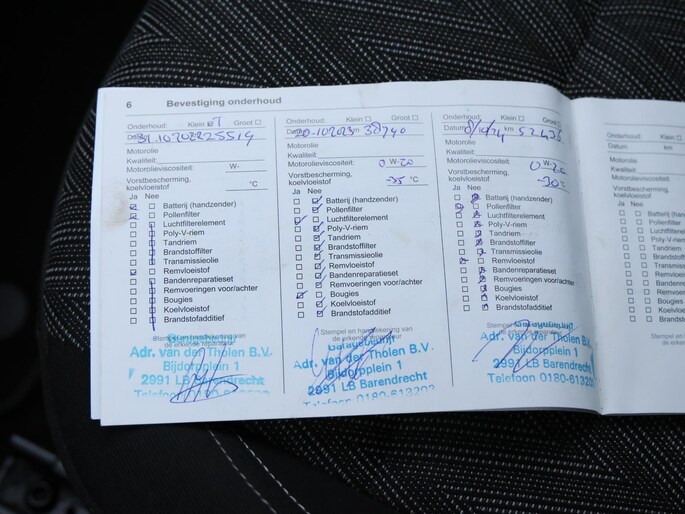 6 Bevestiging onderhoud
Onderhoud: Klein Groot
31.10 2022 25519
Motorolie
Kwaliteit:
Motorolieviscositeit: W-
Vorstbescherming,
koelvloeistof °C
Ja Nee
Batterij (handzender)
Pollenfilter
Luchtfilterelement
Poly-V-riem
Tandriem
Brandstoffilter
Transmissieolie
Remvloeistof
Bandenreparatieset
Remvoeringen voor/achter
Bougies
Koelvloeistof
Brandstofadditief
Stempel en handtekening van
de erkende reparateur
Adr. van der Tholen B.V.
Bijdorpplein 1
2991 LB Barendrecht
Telefoon 0180-613202
Onderhoud: Klein Groot
20-10 2023 km 38740
Motorolie
Kwaliteit:
Motorolieviscositeit: 0 W-20
Vorstbescherming,
koelvloeistof -25 °C
Ja Nee
Batterij (handzender)
Pollenfilter
Luchtfilterelement
Poly-V-riem
Tandriem
Brandstoffilter
Transmissieolie
Remvloeistof
Bandenreparatieset
Remvoeringen voor/achter
Bougies
Koelvloeistof
Brandstofadditief
Stempel en handtekening van
de erkende reparateur
Garagebedrijf
Adr. van der Tholen B.V.
Bijdorpplein 1
2991 LB Barendrecht
Telefoon 0180-613202
Onderhoud: Klein Groot
Datum 8/10/24 km 52436
Motorolie
Kwaliteit:
Motorolieviscositeit: 0 W-20
Vorstbescherming,
koelvloeistof -30 °C
Ja Nee
Batterij (handzender)
Pollenfilter
Luchtfilterelement
Poly-V-riem
Tandriem
Brandstoffilter
Transmissieolie
Remvloeistof
Bandenreparatieset
Remvoeringen voor/achter
Bougies
Koelvloeistof
Brandstofadditief
Adr. van der Tholen B.V.
Bijdorpplein 1
2991 LB Barendrecht
Telefoon 0180-613202
Onderhoud: Klein
Datum km
Motorolie
Kwaliteit:
Motorolieviscositeit:
Vorstbescherming,
koelvloeistof
Ja Nee
Batterij (hand
Pollenfilter
Luchtfiltere
Poly-V-rie
Tandriem
Brandstof
Transmis
Remvloe
Bandenr
Remvoe
Bougies
Koelvlo
Brands